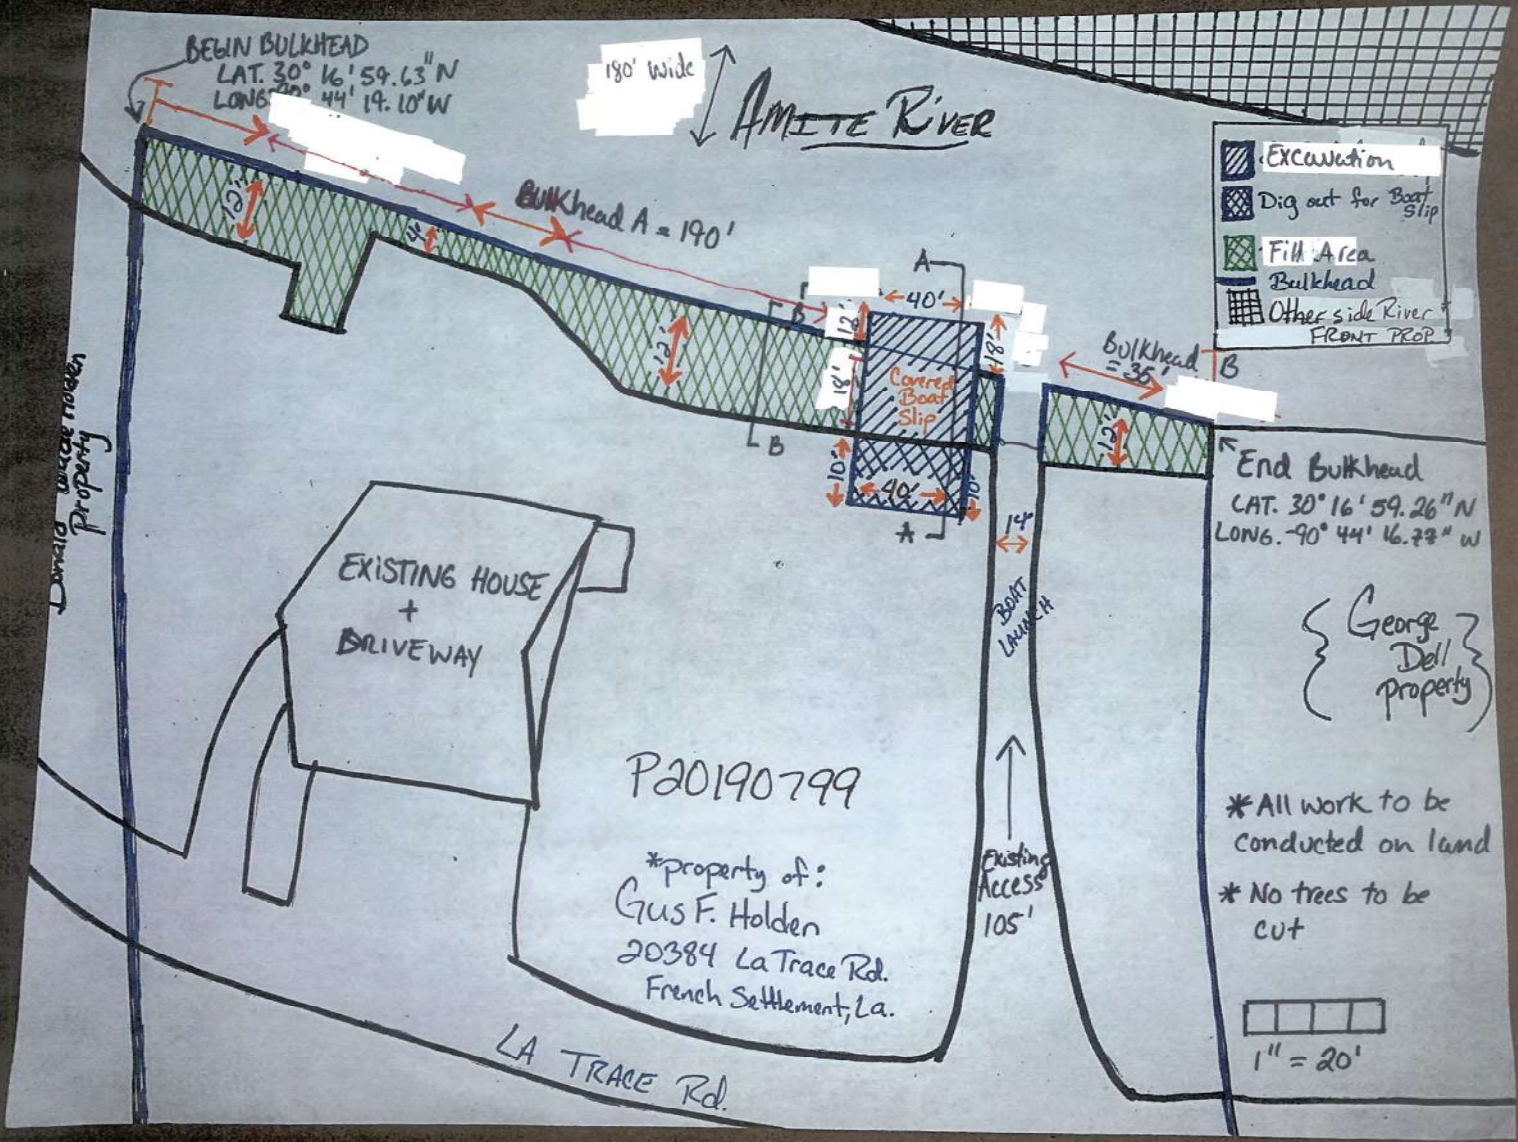 BEGIN BULKHEAD
LAT. 30° 16' 59.63" N
LONG. -90° 44' 19.10" W
180' Wide
AMITE RIVER
Excavation
Dig out for Boat
Slip
Fill Area
Bulkhead
Other side River
FRONT PROP.
12'
4'
Bulkhead A = 190'
A
40'
B
12'
18'
12'
18'
Covered
Boat
Slip
Bulkhead
= 35'
B
12'
B
10'
40'
10'
A
14'
End Bulkhead
LAT. 30° 16' 59.26" N
LONG. -90° 44' 16.77" W
Donald Holden
Property
EXISTING HOUSE
+
DRIVEWAY
BOAT
LAUNCH
George
Dell
property
P20190799
*property of:
Gus F. Holden
20384 La Trace Rd.
French Settlement, La.
Existing
Access
105'
* All work to be
conducted on land
* No trees to be
cut
LA TRACE Rd.
1" = 20'